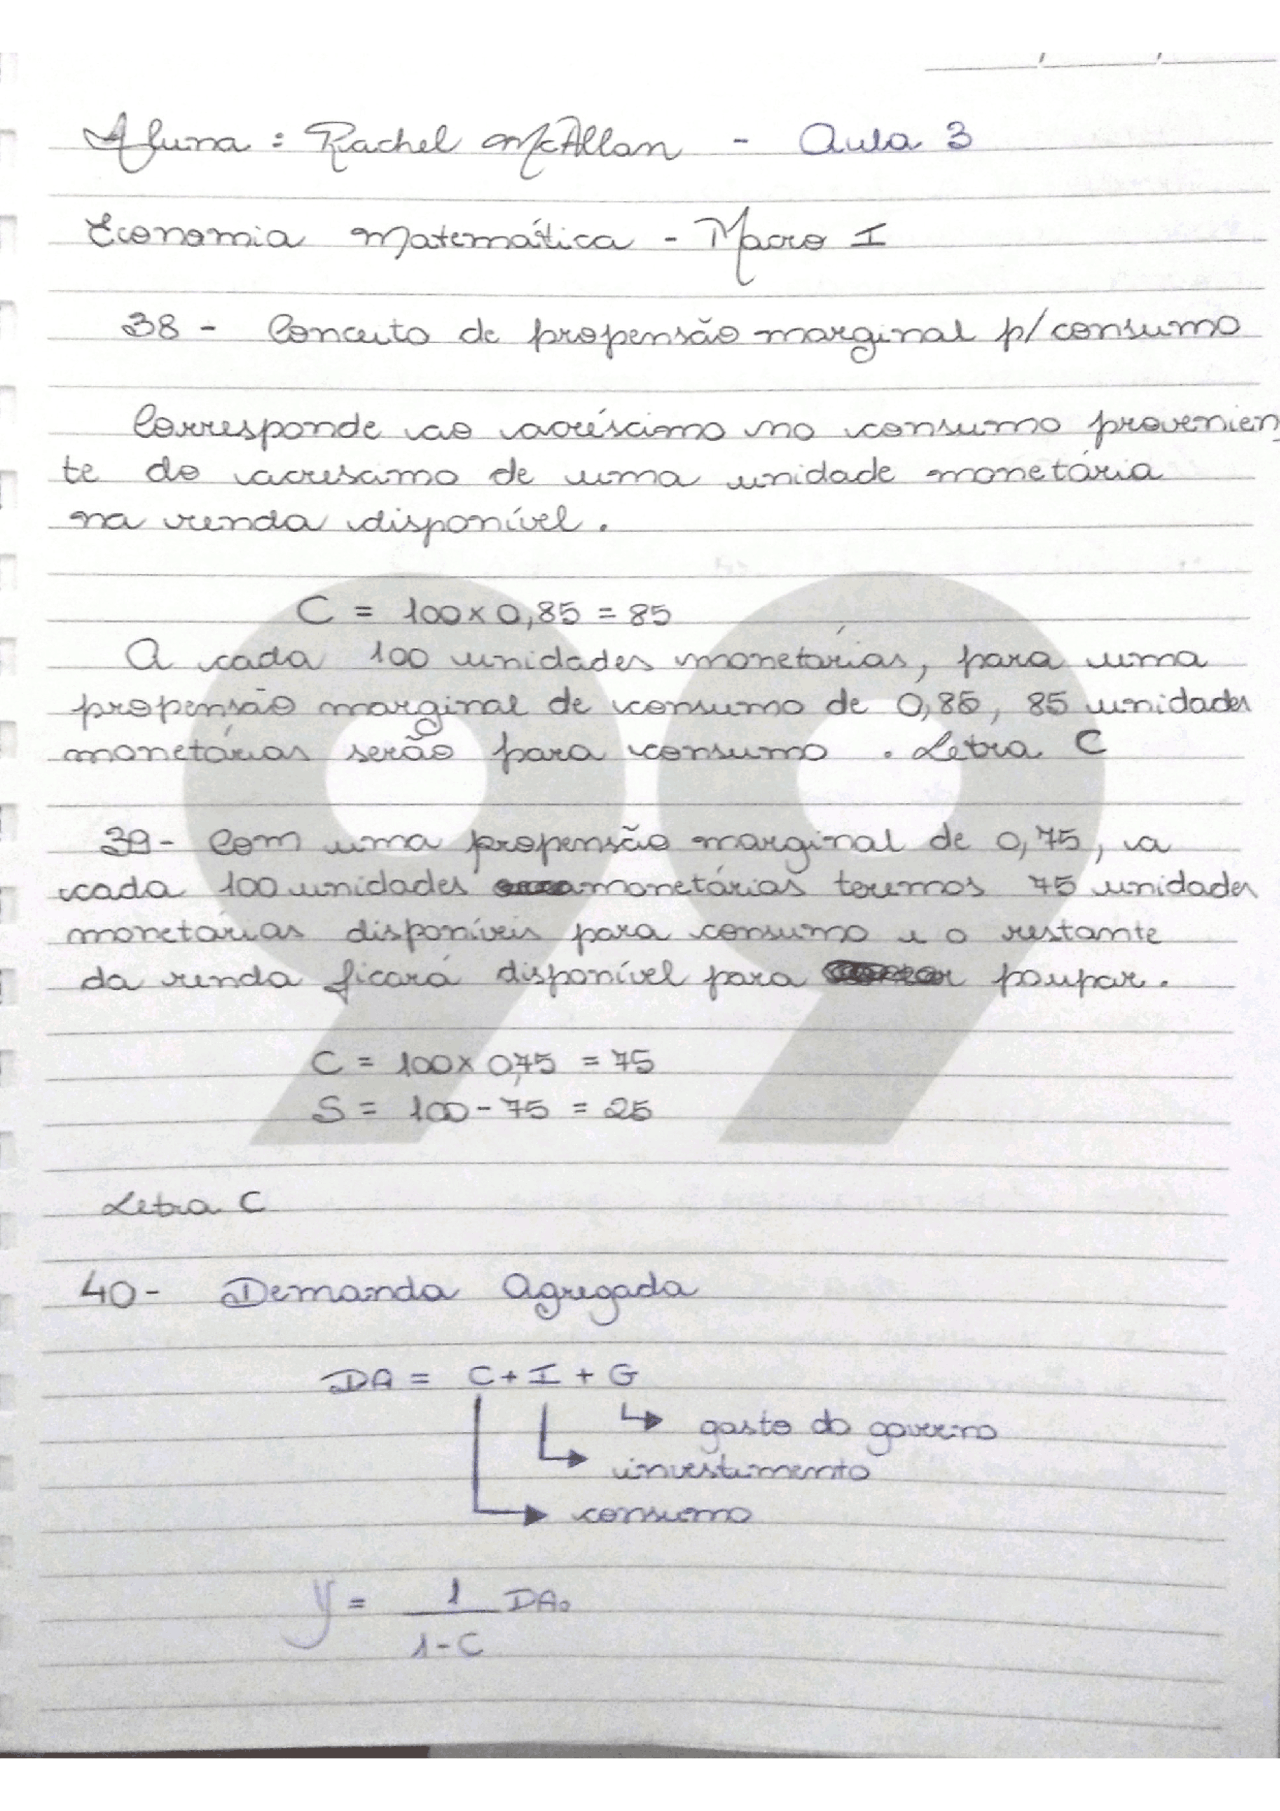 Aluna: Rachel McAllan - Aula 3
Economia Matemática - Macro I
38 - Conceito de propensão marginal p/ consumo
Corresponde ao acréscimo no consumo provenien
te do acrescimo de uma unidade monetária
na renda disponível.
C = 100 x 0,85 = 85
A cada 100 unidades monetárias, para uma
propensão marginal de consumo de 0,85, 85 unidades
monetárias serão para consumo. Letra C
39 - Com uma propensão marginal de 0,75, a
cada 100 unidades monetárias teremos 75 unidades
monetárias disponíveis para consumo e o restante
da renda ficará disponível para poupar.
C = 100 x 0,75 = 75
S = 100 - 75 = 25
Letra C
40 - Demanda Agregada
DA = C + I + G
gasto do governo
investimento
consumo
y = 1 DA₀
1-C
99